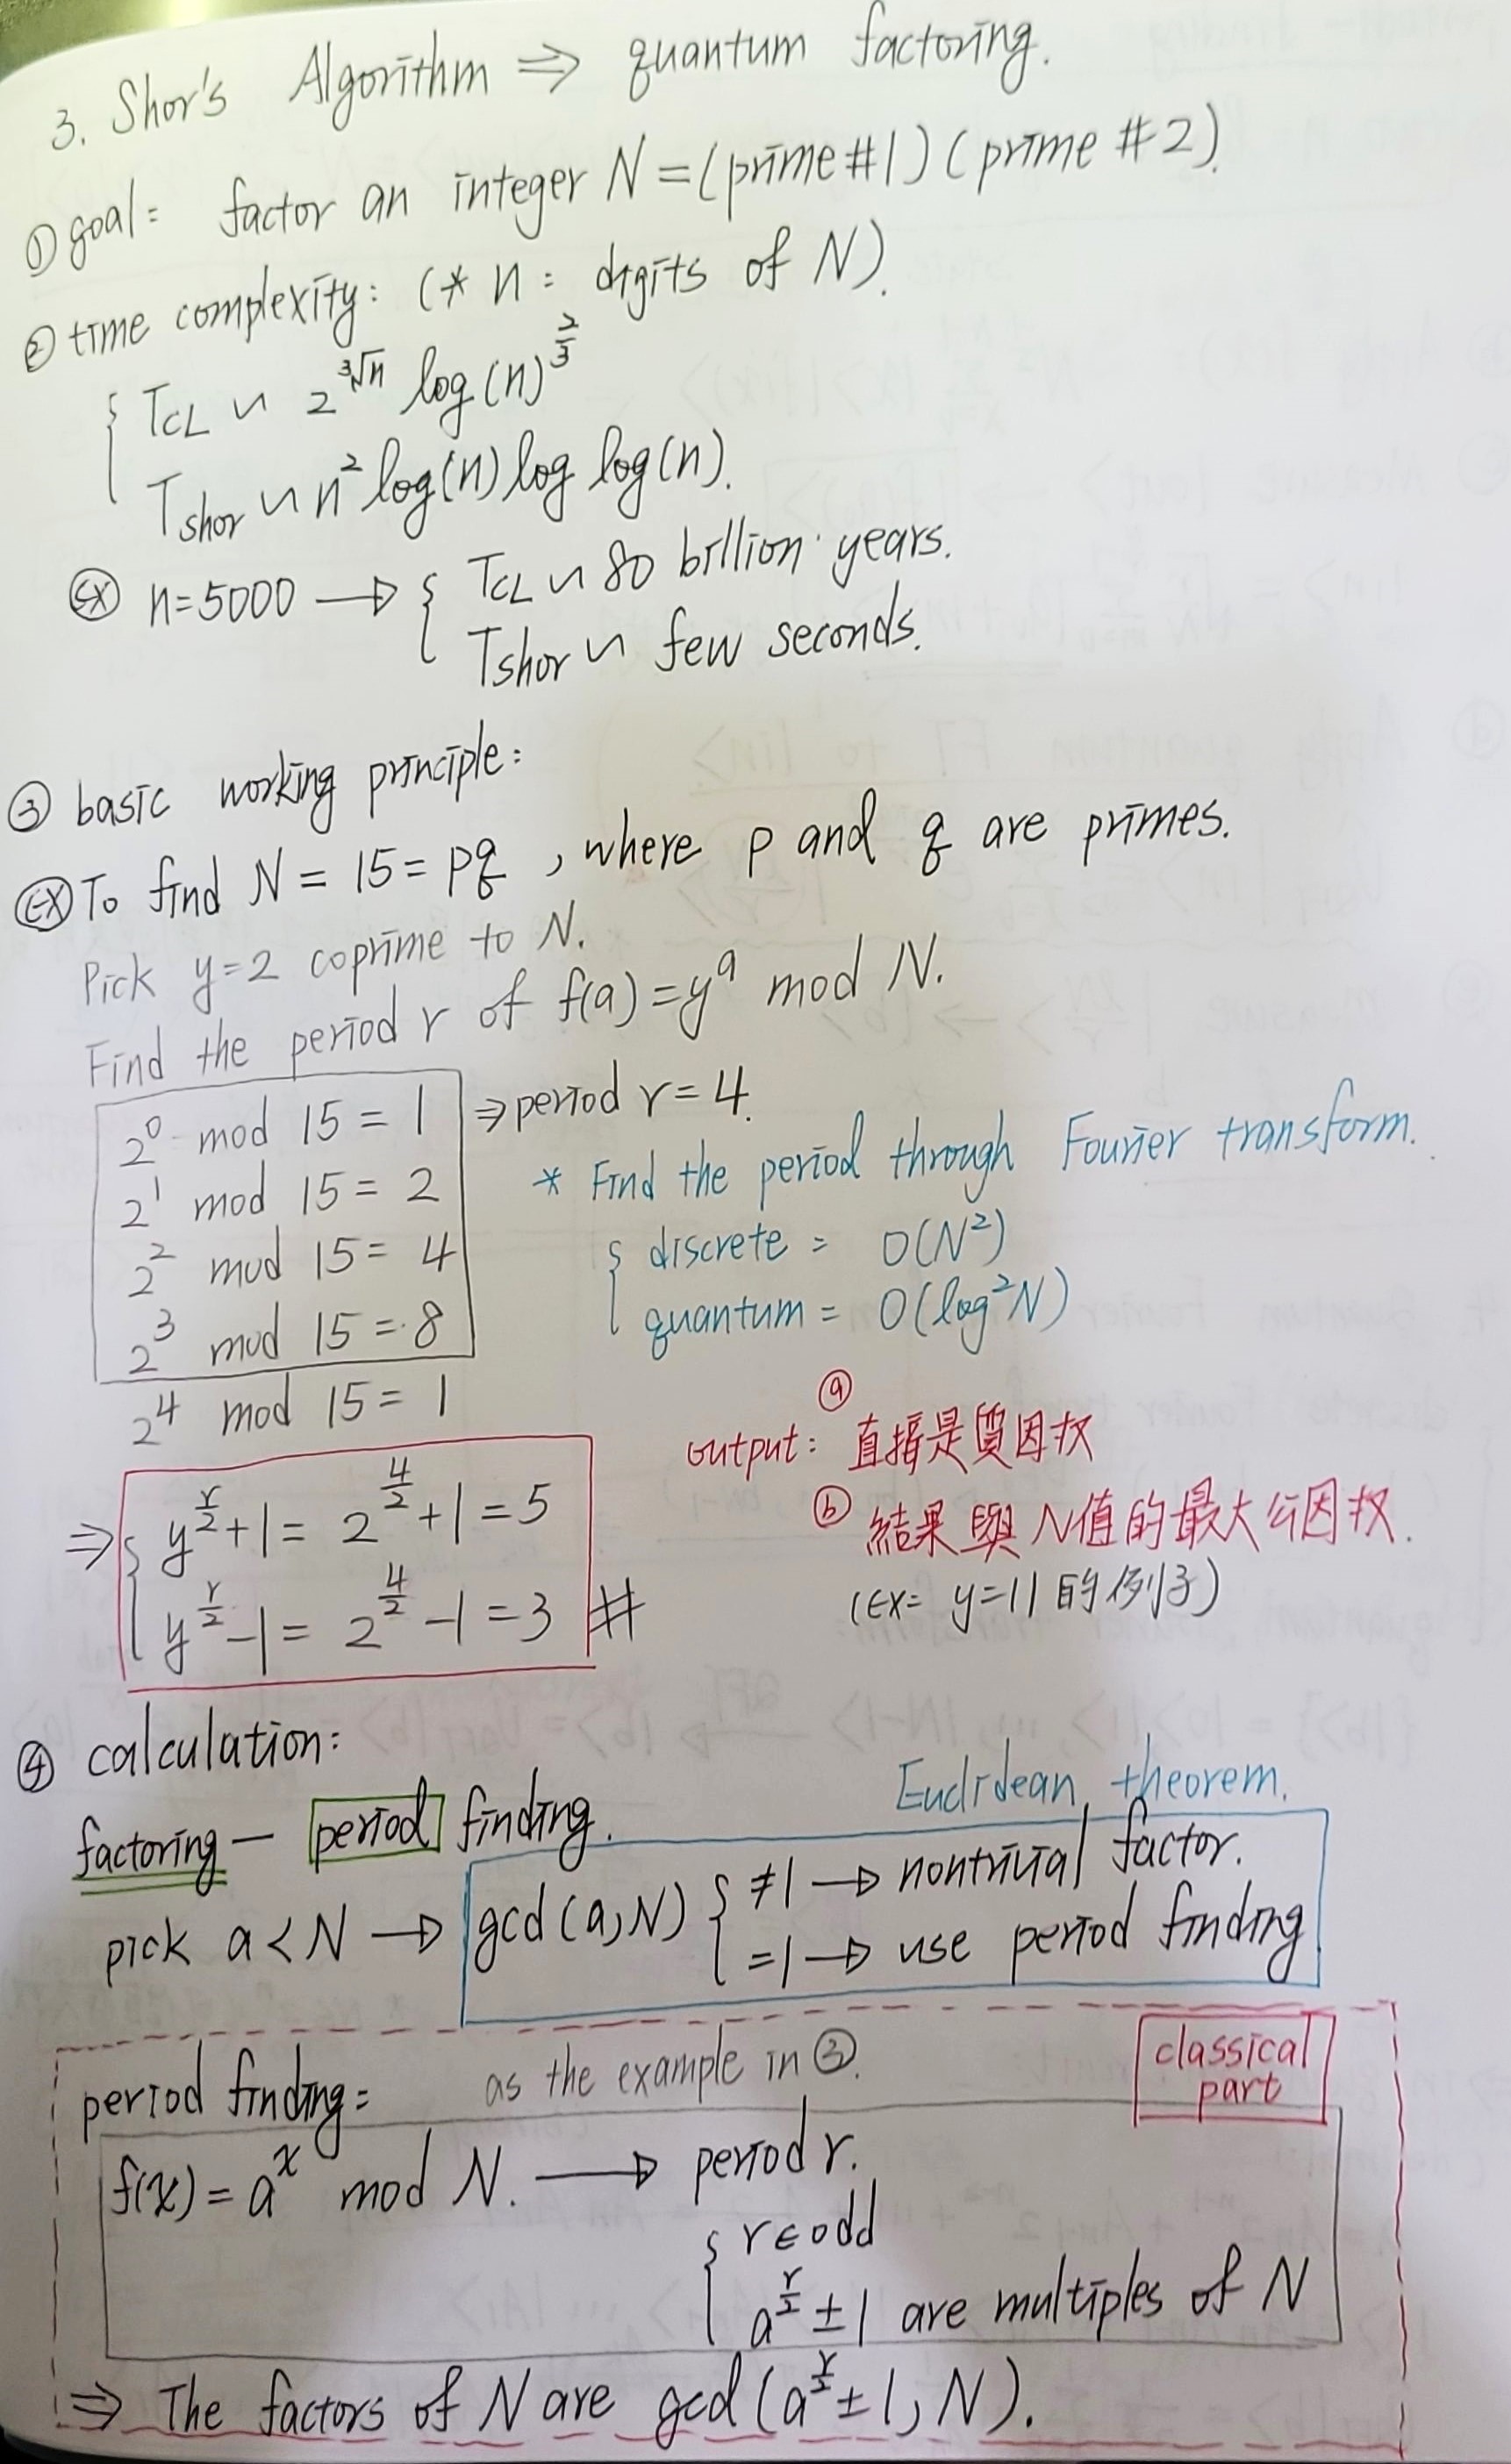 3. Shor's Algorithm ⇒ quantum factoring.
① goal: factor an integer N = (prime #1) (prime #2).
② time complexity: (* n = digits of N).
T_CL ~ 2^∛n log(n)^(2/3)
T_shor ~ n² log(n) log log(n).
EX n=5000 → { T_CL ~ 80 billion years.
T_shor ~ few seconds.
③ basic working principle:
EX To find N = 15 = pq, where p and q are primes.
Pick y=2 coprime to N.
Find the period r of f(a) = y^a mod N.
2^0 mod 15 = 1 ⇒ period r = 4.
2^1 mod 15 = 2
2^2 mod 15 = 4
2^3 mod 15 = 8
2^4 mod 15 = 1
* Find the period through Fourier transform.
discrete = O(N²)
quantum = O(log²N)
output: ⓐ 直接是質因数
ⓑ 結果與N值的最大公因数.
(EX= y=11 的例子)
⇒ { y^(r/2)+1 = 2^(4/2)+1 = 5
y^(r/2)-1 = 2^(4/2)-1 = 3 #
④ calculation:
factoring — period finding.
Euclidean theorem.
pick a < N → gcd(a,N) { ≠1 → nontrivial factor.
=1 → use period finding
classical part
period finding= as the example in ③.
f(x) = a^x mod N. → period r.
{ r∈odd
a^(r/2) ± 1 are multiples of N
⇒ The factors of N are gcd(a^(r/2) ± 1, N).